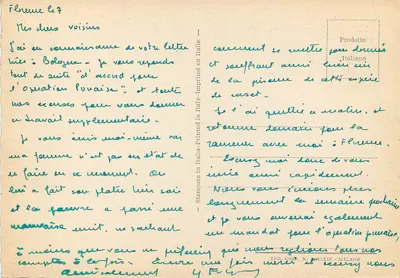 Florence le 7
Mes chers voisins
J'ai eu connaissance de votre lettre
hier à Bologne. Je vous réponds
tout de suite "d'accord pour
l'opération punaise". et toutes
nos excuses pour vous donner
ce travail supplémentaire.
Je vous écris moi-même car
ma femme n'est pas en état de
le faire en ce moment. On
lui a fait son plâtre hier soir
et la pauvre a passé une
mauvaise nuit, ne sachant
comment se mettre pour dormir
et souffrant aussi bien sûr
de la de cette espèce
de corset.
Je l'ai quittée ce matin, et
retourne demain pour la
ramener avec moi à Florence.
moi donc de vous
écrire aussi rapidement.
Nous vous écrirons plus
longuement la semaine prochaine
et je vous enverrai également
un mandat pour l'opération punaise,
à moins que vous ne préfériez que nous réglions tous nos
comptes à la fois. Encore une fois merci et recevez nos
Prodotto
Italiano
Fabriqué en Italie-Printed in Italy-Imprimé en Italie